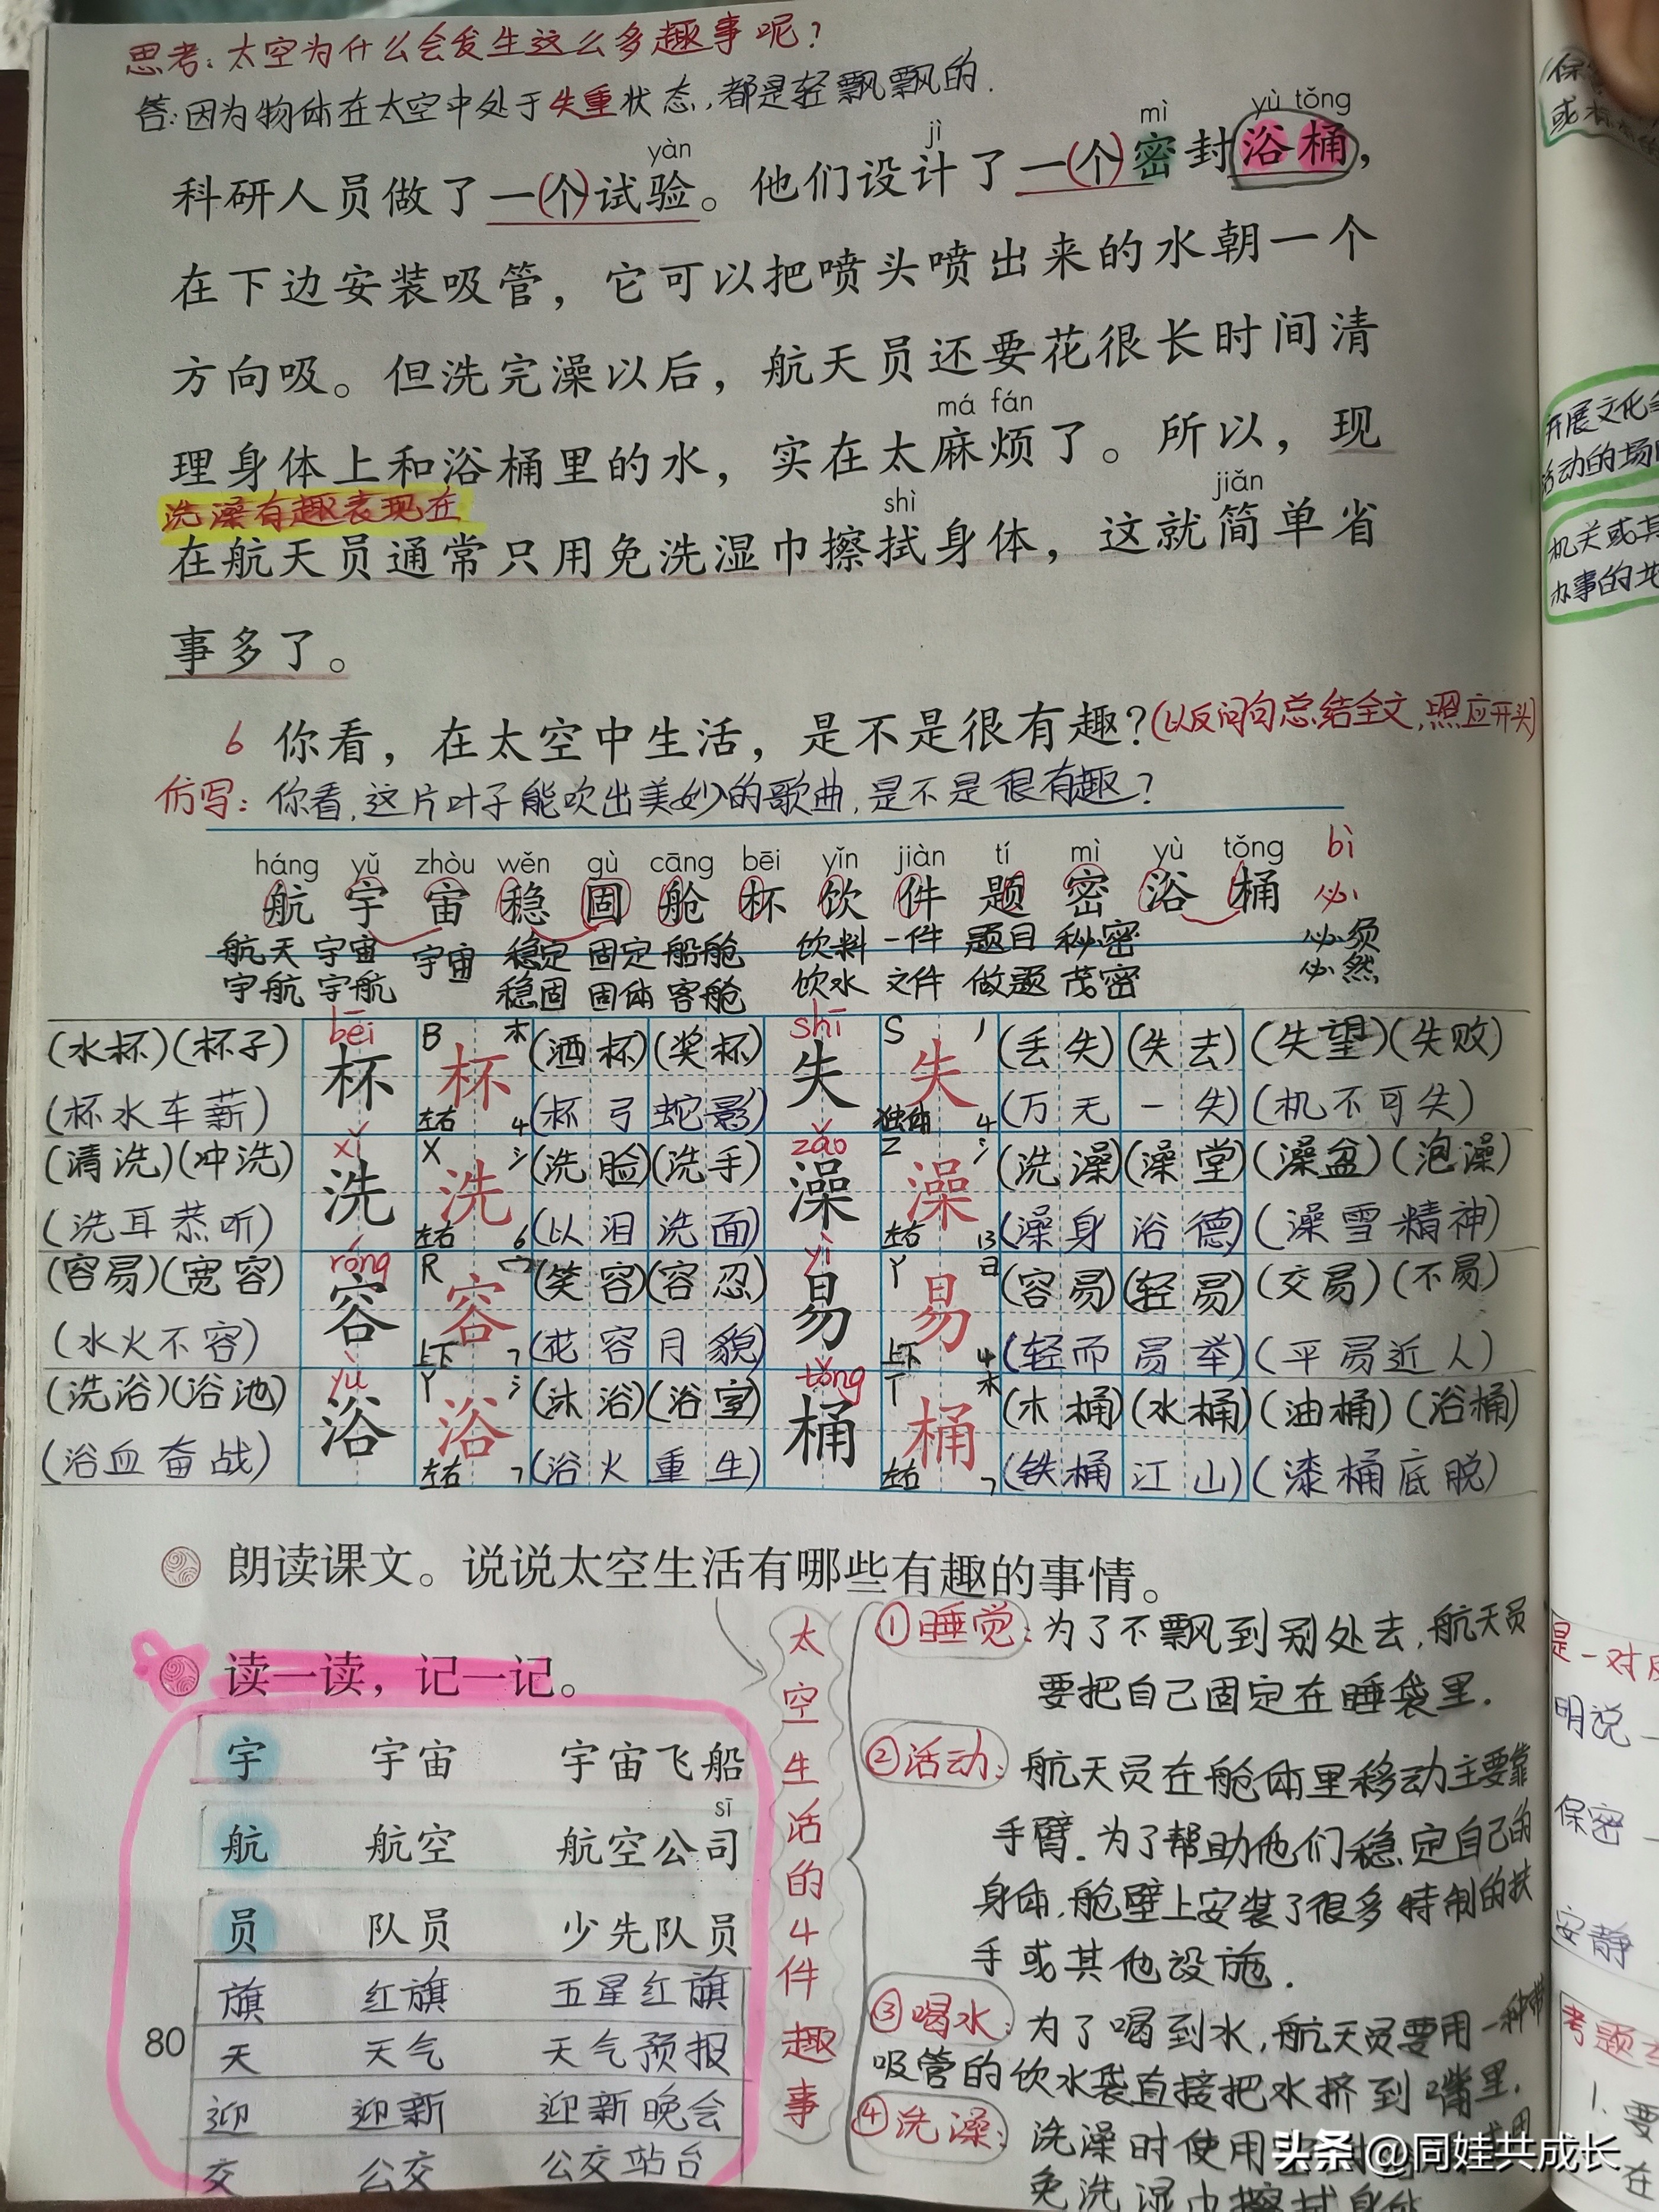 思考：太空为什么会发生这么多趣事呢？
答：因为物体在太空中处于失重状态，都是轻飘飘的．
yàn jì mì yù tǒng
科研人员做了一(个)试验。他们设计了一(个)密封浴桶，
在下边安装吸管，它可以把喷头喷出来的水朝一个
方向吸。但洗完澡以后，航天员还要花很长时间清
má fán
理身体上和浴桶里的水，实在太麻烦了。所以，现
洗澡有趣表现在
shì jiǎn
在航天员通常只用免洗湿巾擦拭身体，这就简单省
事多了。
6 你看，在太空中生活，是不是很有趣？(以反问句总结全文，照应开头)
仿写：你看，这片叶子能吹出美妙的歌曲，是不是很有趣？
háng yǔ zhòu wěn gù cāng bēi yǐn jiàn tí mì yù tǒng bì
航 宇 宙 稳 固 舱 杯 饮 件 题 密 浴 桶 必
航天 宇宙 宇宙 稳定 固定 船舱 饮料 一件 题目 秘密 必须
宇航 宇航 稳固 固体 客舱 饮水 文件 做题 茂密 必然
bēi shī
(水杯)(杯子) 杯 B 木 杯 (酒杯)(奖杯) 失 S 丿 失 (丢失)(失去) (失望)(失败)
(杯水车薪) 左右 4 (杯弓蛇影) 独体 4 (万无一失) (机不可失)
xǐ zǎo
(清洗)(冲洗) 洗 X 氵 洗 (洗脸)(洗手) 澡 Z 氵 澡 (洗澡)(澡堂) (澡盆)(泡澡)
(洗耳恭听) 左右 6 (以泪洗面) 左右 13 (澡身浴德) (澡雪精神)
róng yì
(容易)(宽容) 容 R 宀 容 (笑容)(容忍) 易 Y 日 易 (容易)(轻易) (交易)(不易)
(水火不容) 上下 7 (花容月貌) 上下 4 (轻而易举) (平易近人)
yù tǒng
(洗浴)(浴池) 浴 Y 氵 浴 (沐浴)(浴室) 桶 T 木 桶 (木桶)(水桶) (油桶)(浴桶)
(浴血奋战) 左右 7 (浴火重生) 左右 7 (铁桶江山) (漆桶底脱)
朗读课文。说说太空生活有哪些有趣的事情。
读一读，记一记。
宇 宇宙 宇宙飞船
sī
航 航空 航空公司
员 队员 少先队员
旗 红旗 五星红旗
天 天气 天气预报
迎 迎新 迎新晚会
交 公交 公交站台
80
太空生活的4件趣事
①睡觉：为了不飘到别处去，航天员
要把自己固定在睡袋里．
②活动：航天员在舱体里移动主要靠
手臂．为了帮助他们稳定自己的
身体，舱壁上安装了很多特制的扶
手或其他设施．
③喝水：为了喝到水，航天员要用一种带
吸管的饮水袋直接把水挤到嘴里．
④洗澡：洗澡时使用
免洗湿巾擦拭身体
开展文化
活动的场
机关或其
办事的
是一对
明说
保密
安静
考题
1．要
在
头条@同娃共成长